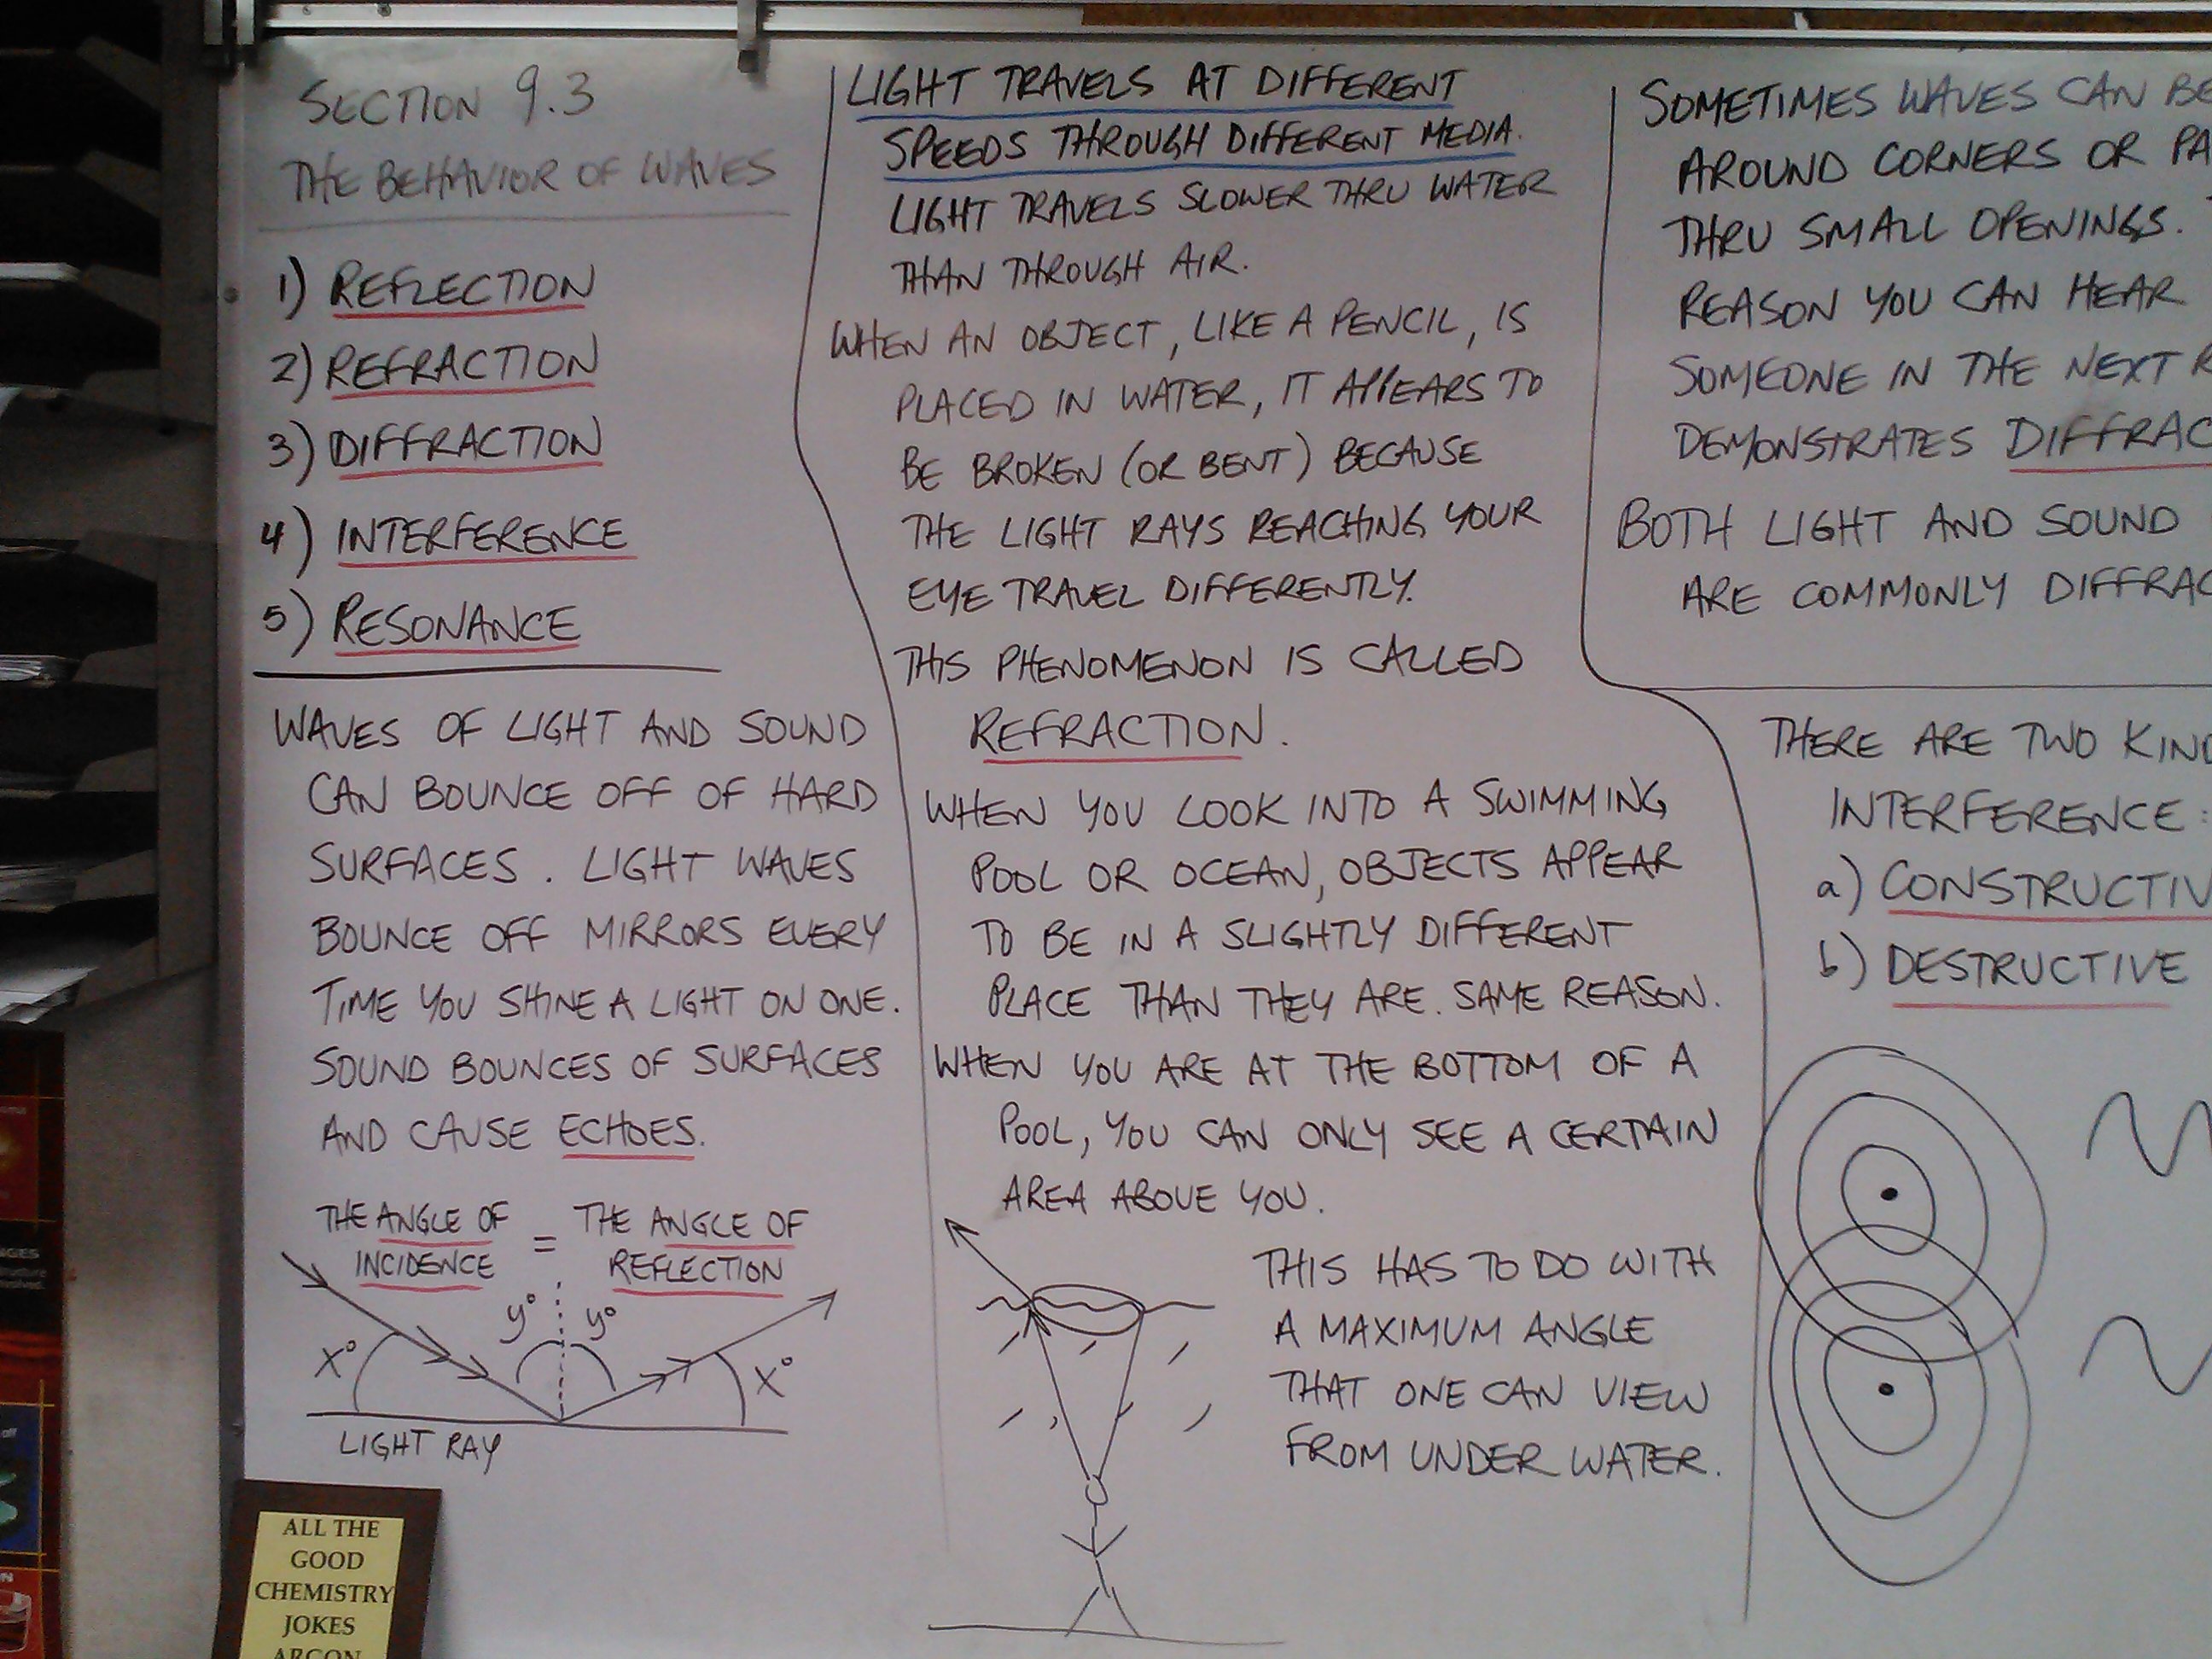 SECTION 9.3
THE BEHAVIOR OF WAVES
1) REFLECTION
2) REFRACTION
3) DIFFRACTION
4) INTERFERENCE
5) RESONANCE
WAVES OF LIGHT AND SOUND
CAN BOUNCE OFF OF HARD
SURFACES. LIGHT WAVES
BOUNCE OFF MIRRORS EVERY
TIME YOU SHINE A LIGHT ON ONE.
SOUND BOUNCES OF SURFACES
AND CAUSE ECHOES.
THE ANGLE OF = THE ANGLE OF
INCIDENCE REFLECTION
y° y°
x° x°
LIGHT RAY
ALL THE
GOOD
CHEMISTRY
JOKES
ARGON
LIGHT TRAVELS AT DIFFERENT
SPEEDS THROUGH DIFFERENT MEDIA.
LIGHT TRAVELS SLOWER THRU WATER
THAN THROUGH AIR.
WHEN AN OBJECT, LIKE A PENCIL, IS
PLACED IN WATER, IT APPEARS TO
BE BROKEN (OR BENT) BECAUSE
THE LIGHT RAYS REACHING YOUR
EYE TRAVEL DIFFERENTLY.
THIS PHENOMENON IS CALLED
REFRACTION.
WHEN YOU LOOK INTO A SWIMMING
POOL OR OCEAN, OBJECTS APPEAR
TO BE IN A SLIGHTLY DIFFERENT
PLACE THAN THEY ARE. SAME REASON.
WHEN YOU ARE AT THE BOTTOM OF A
POOL, YOU CAN ONLY SEE A CERTAIN
AREA ABOVE YOU.
THIS HAS TO DO WITH
A MAXIMUM ANGLE
THAT ONE CAN VIEW
FROM UNDER WATER.
SOMETIMES WAVES CAN BE
AROUND CORNERS OR PA
THRU SMALL OPENINGS.
REASON YOU CAN HEAR
SOMEONE IN THE NEXT R
DEMONSTRATES DIFFRAC
BOTH LIGHT AND SOUND
ARE COMMONLY DIFFRAC
THERE ARE TWO KIND
INTERFERENCE:
a) CONSTRUCTIV
b) DESTRUCTIVE